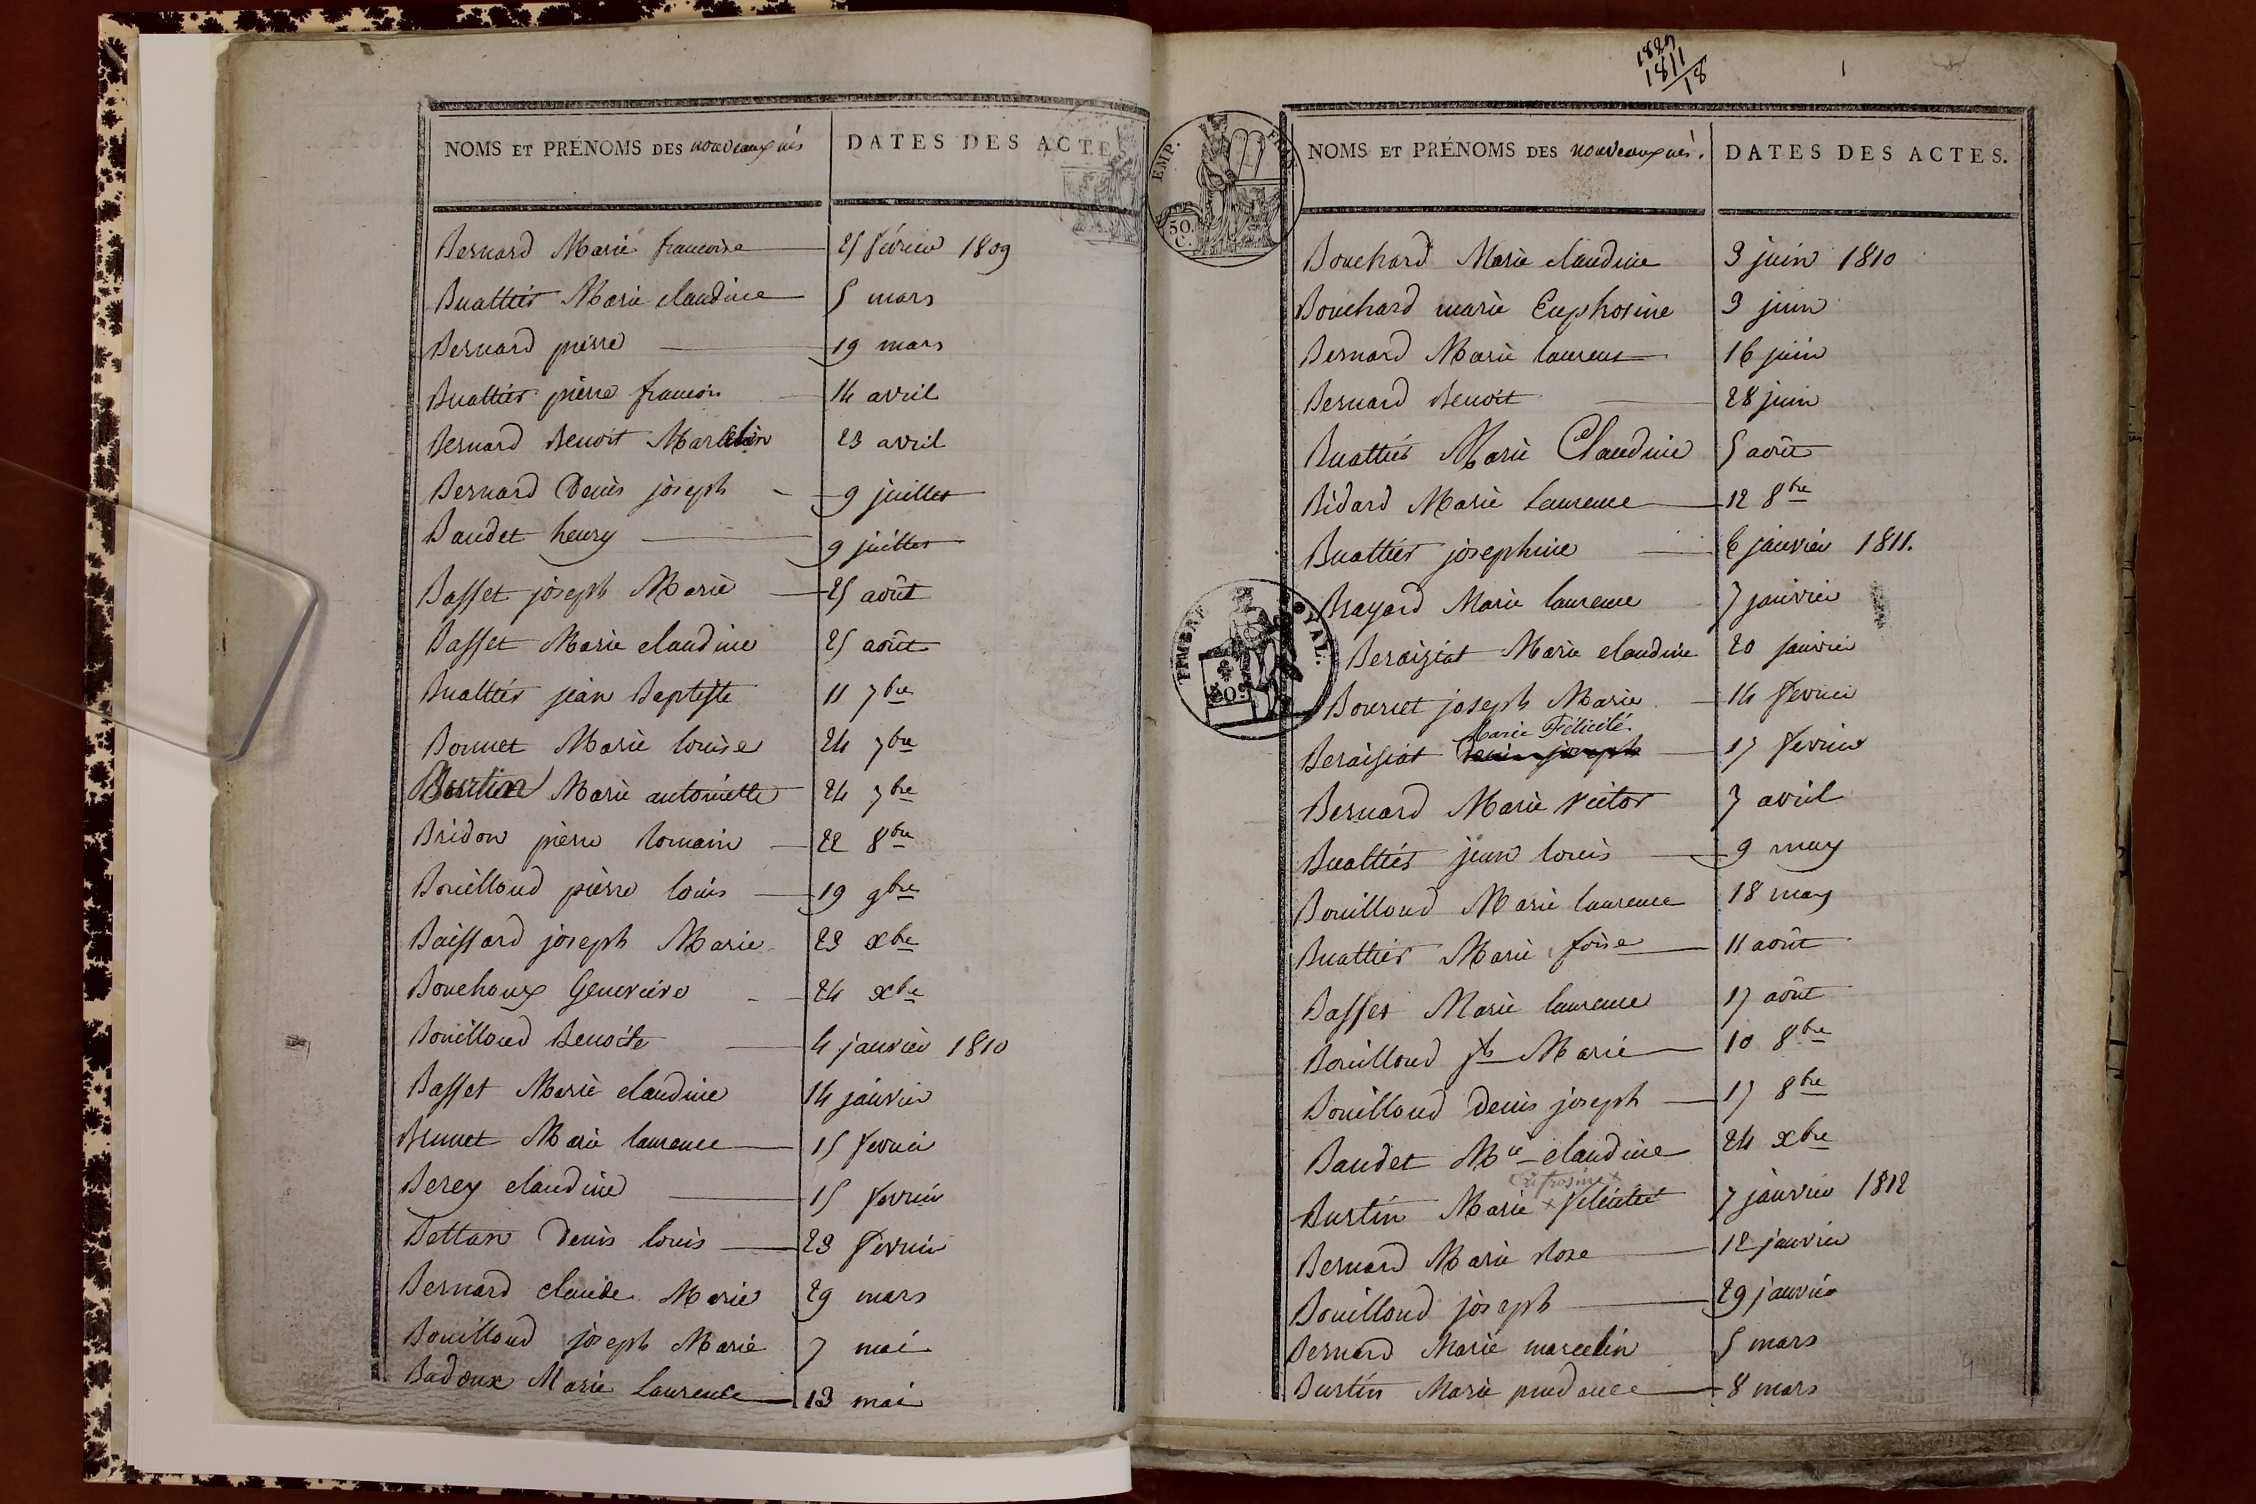 NOMS ET PRÉNOMS DES nouveaux nés
DATES DES ACTE
Bernard Marie francoise 25 février 1809
Buattier Marie claudine 5 mars
Bernard pierre 19 mars
Buattier pierre francois 14 avril
Bernard Benoit Marcelin 23 avril
Bernard Denis joseph 9 juillet
Baudet henry 9 juillet
Basset joseph Marie 25 août
Basset Marie claudine 25 août
Buattier jean Baptiste 11 7bre
Bonnet Marie louise 24 7bre
Marie antoinette 24 7bre
Bridon pierre Romain 22 8bre
Bouilloud pierre louis 19 9bre
Baissard joseph Marie 23 xbre
Bouchoux Genevieve 24 xbre
Bouilloud Benoite 4 janvier 1810
Basset Marie claudine 14 janvier
Brunet Marie laurence 15 fevrier
Berey claudine 15 fevrier
Bettan Denis louis 23 fevrier
Bernard claude Marie 29 mars
Bouilloud joseph Marie 7 mai
Badoux Marie Laurence 13 mai
1829
1811
18
1
EMP. FRAN
50.
C.
NOMS ET PRÉNOMS DES nouveaux nés.
DATES DES ACTES.
Bouchard Marie claudine 3 juin 1810
Bouchard marie Euphosine 3 juin
Bernard Marie laurent 16 juin
Bernard Benoit 28 juin
Buattier Marie Claudine 5 août
Bidard Marie Laurence 12 8bre
Buattier josephine 6 janvier 1811.
Bayard Marie laurence 7 janvier
TIMBRE ROYAL.
Beraiziat Marie claudine 20 janvier
Bourcet joseph Marie 14 fevrier
Marie Félicité
Beraisiat Denis joseph 17 fevrier
Bernard Marie victor 7 avril
Buattier jean louis 9 may
Bouilloud Marie laurence 18 may
Buattier Marie foise 11 août
Basset Marie laurence 17 août
Bouilloud jh Marie 10 8bre
Bouilloud Denis joseph 17 8bre
Baudet Mie claudine 24 xbre
Eufrosine
Burtin Marie felicité 7 janvier 1812
Bernard Marie Rose 12 janvier
Bouilloud joseph 29 janvier
Bernard Marie marcelin 5 mars
Burtin Marie prudence 8 mars